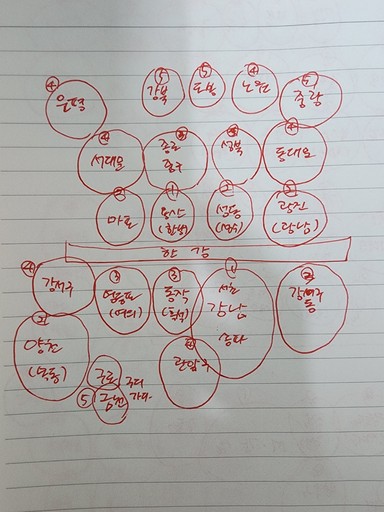 ④ ⑤ ⑤ ④ ④
은평 강북 도봉 노원 중랑
④ ③ ③ ④
서대문 종로 성북 동대문
중구
② ① ② ③
마포 용산 성동 광진
(한남) (광남)
한강
④ ③ ③ ① ②
강서구 영등포 동작 서초 강동
(여의) (흑석) 강남
송파
② ④
양천 관악구
(목동)
구로 구디
⑤ 금천 가디